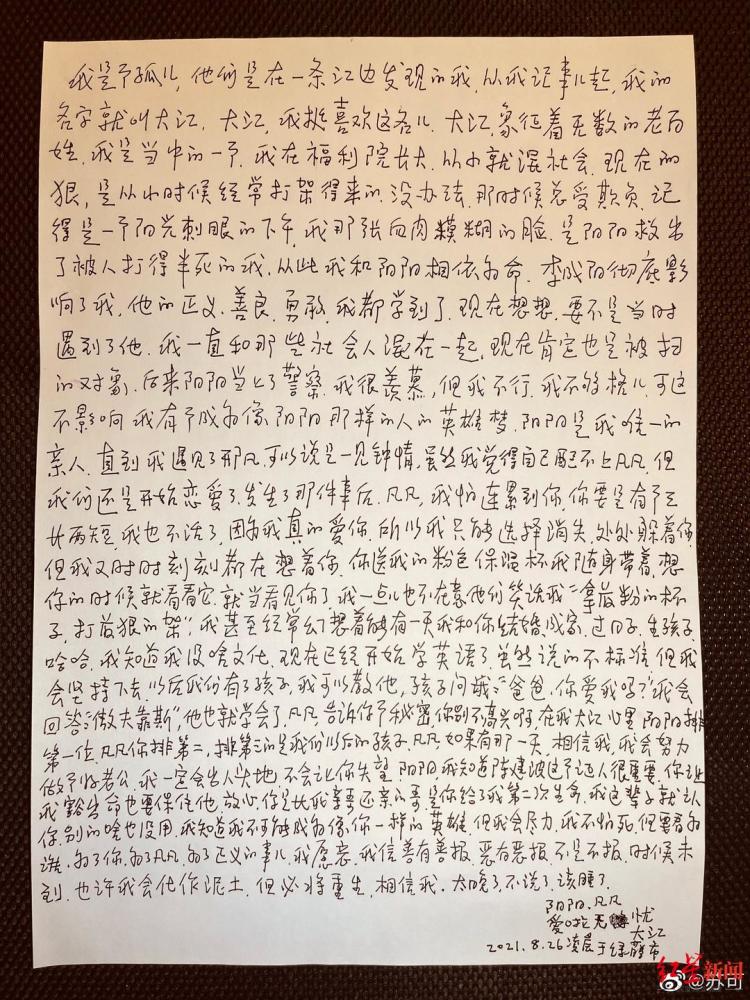 我是个孤儿，他们是在一条江边发现的我，从我记事儿起，我的
名字就叫大江，大江，我挺喜欢这名儿，大江，象征着无数的老百
姓，我是当中的一个，我在福利院长大，从小就混社会，现在的
狠，是从小时候经常打架得来的，没办法，那时候总受欺负，记
得是一个阳光刺眼的下午，我那张血肉糢糊的脸，是阳阳救出
了被人打得半死的我，从此我和阳阳相依为命，李成阳彻底影
响了我，他的正义、善良、勇敢，我都学到了，现在想想，要不是当时
遇到了他，我一直和那些社会人混在一起，现在肯定也是被扫
的对象，后来阳阳当上了警察，我很羡慕，但我不行，我不够格儿，可这
不影响我有个成为像阳阳那样的人的英雄梦，阳阳是我唯一的
亲人，直到我遇见了邢凡，可以说是一见钟情，虽然我觉得自己配不上凡凡，但
我们还是开始恋爱了，发生了那件事后，凡凡，我怕连累到你，你要是有个三
长两短，我也不活了，因为我真的爱你，所以我只能选择消失，处处躲着你，
但我又时时刻刻都在想着你，你送我的粉色保温杯我随身带着，想
你的时候就看看它，就当看见你了，我一点儿也不在意他们笑话我"拿最粉的杯
子，打最狠的架"，我甚至经常幻想着能有一天我和你结婚，成家，过日子，生孩子，
哈哈，我知道我没啥文化，现在已经开始学英语了，虽然说的不标准，但我
会坚持下去，以后我们有了孩子，我可以教他，孩子问我："爸爸，你爱我吗？"我会
回答："傲夫靠斯"，他也就学会了，凡凡，告诉你个秘密，你别不高兴啊，在我大江心里，阳阳排
第一位，凡凡你排第二，排第三的是我们以后的孩子，凡凡，如果有那一天，相信我，我会努力
做个好老公，我一定会出人头地，不会让你失望，阳阳，我知道陈建波这个证人很重要，你让
我豁出命也要保住他，放心，你是比我亲哥还亲的哥，是你给了我第二次生命，我这辈子就认
你，别的啥也没用，我知道我不可能成为像你一样的英雄，但我会尽力，我不怕死，但要看为
谁，为了你，为了凡凡，为了正义的事儿，我愿意，我信善有善报，恶有恶报，不是不报，时候未
到，也许我会化作泥土，但必将重生，相信我，太晚了，不说了，该睡了，
阳阳、凡凡
爱 无 忧
大江
2021.8.26凌晨于绿藤市
红星新闻
@苏可